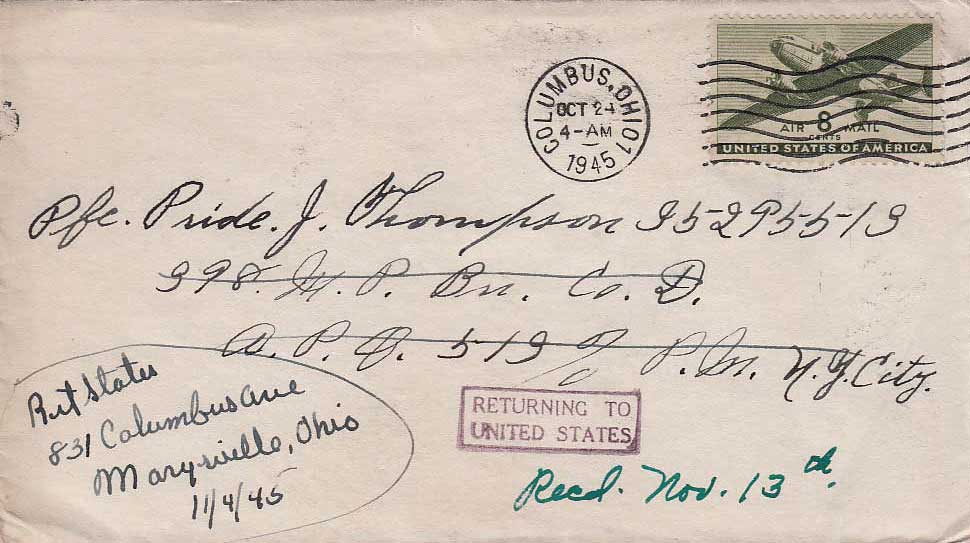 COLUMBUS, OHIO 1
OCT 24
4-AM
1945
AIR 8 MAIL
CENTS
UNITED STATES OF AMERICA
Pfc. Pride. J. Thompson 35295513
398. M. P. Bn. Co. D.
A. P. O. 513 % P. M. N. Y. City.
Ret States
831 Columbus Ave
Marysville, Ohio
11/4/45
RETURNING TO
UNITED STATES
Recd. Nov. 13th.